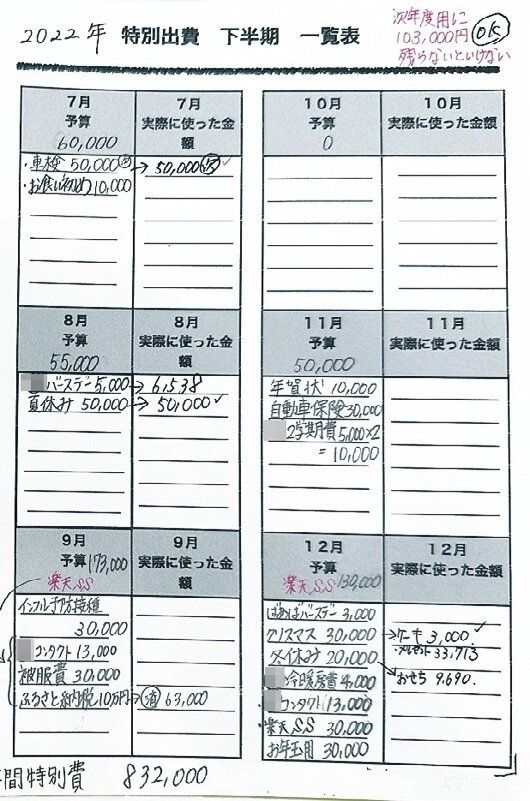 2022年 特別出費 下半期 一覧表
次年度用に
103,000円
残らないといけない
OK
7月
予算
60,000
7月
実際に使った金
額
・車検 50,000 → 50,000 ✓
・お食い初め 10,000
10月
予算
0
10月
実際に使った金額
8月
予算
55,000
8月
実際に使った金
額
バースデー 5,000 → 6,538
夏休み 50,000 → 50,000 ✓
11月
予算
50,000
11月
実際に使った金額
年賀状 10,000
自動車保険 30,000
2学期費 5,000×2
= 10,000
9月
予算 173,000
楽天SS
9月
実際に使った金
額
インフル予防接種
30,000
コンタクト 13,000
被服費 30,000
ふるさと納税 10万円 → 済 63,000
12月
予算
楽天SS 130,000
12月
実際に使った金額
ばあばバースデー 3,000
クリスマス 30,000 → ケーキ 3,000. ✓
・プレゼント 33,713
冬休み 20,000 → おせち 9,690.
冷暖房費 4,000
コンタクト 13,000
・楽天SS 30,000
お年玉用 30,000
間特別費 832,000